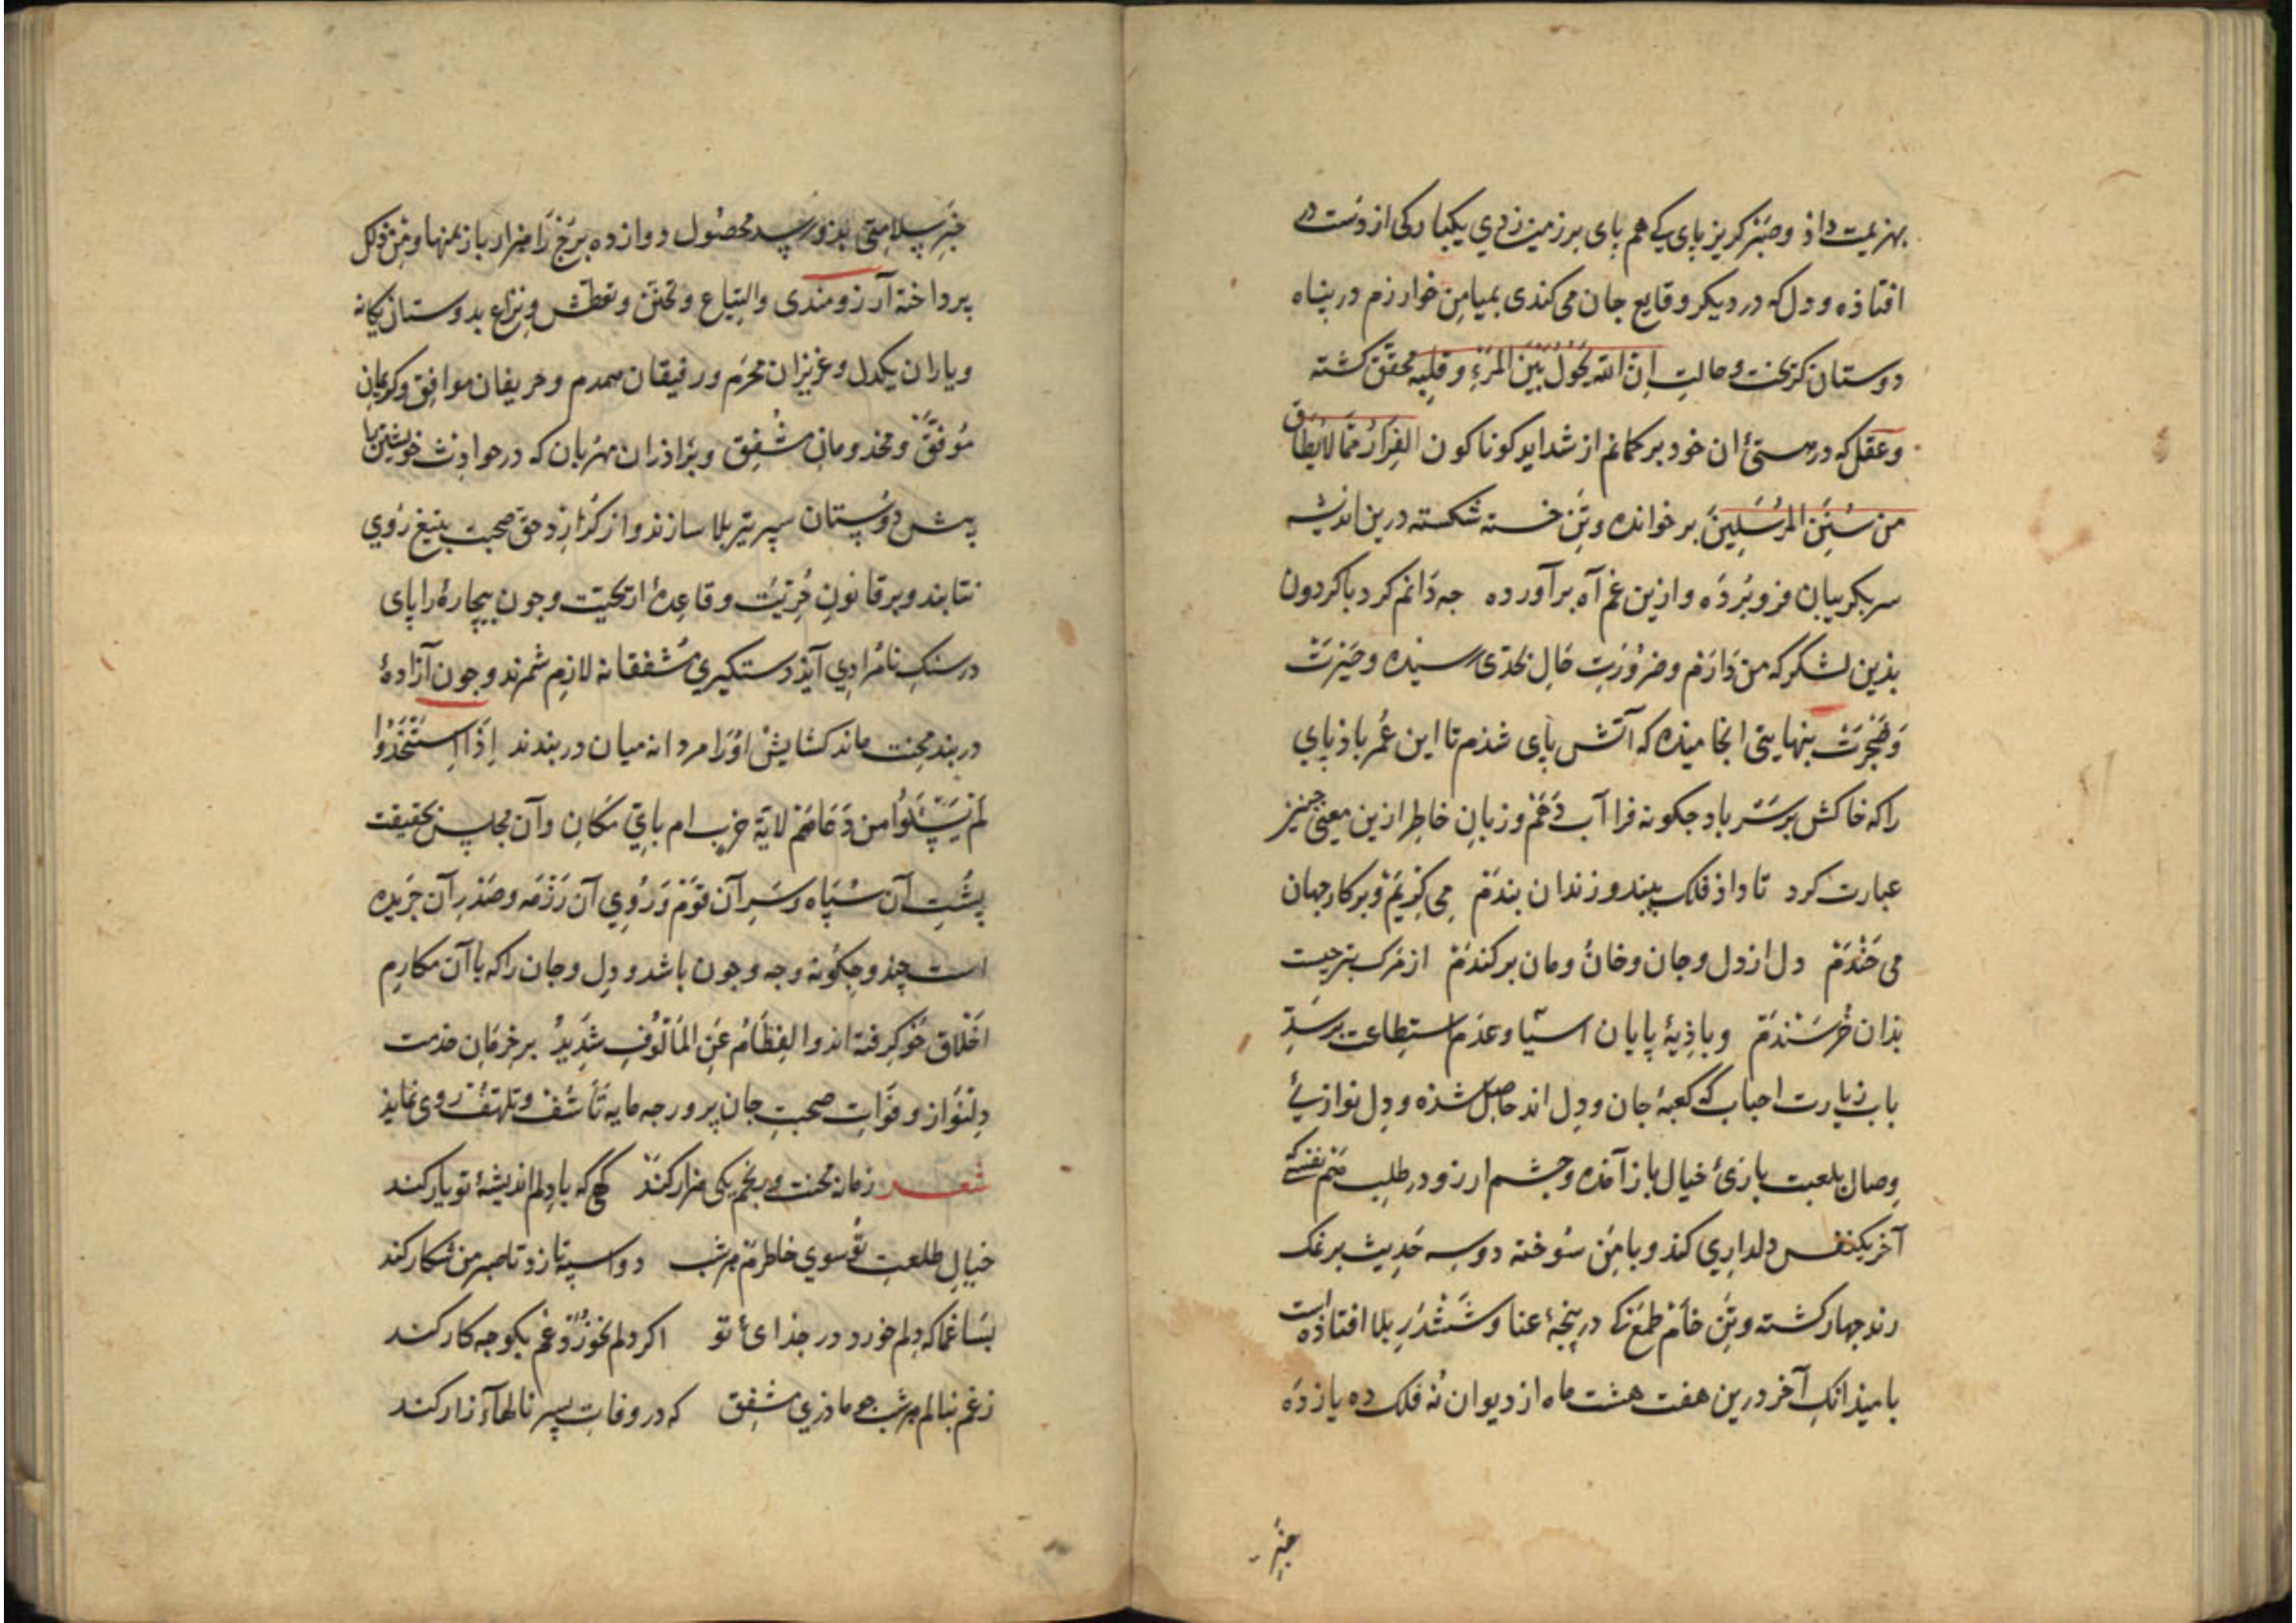 بهزیمت داذ و صبر گریز پای کی هم پای بر زمین زدی یکبارکی از دست در
افتاذه و دل که در دیکر وقایع جان می کندی بمیامن خوارزم در پناه
دوستان کریخت و حالت اِنَّ اللّه یَحُولُ بَیْنَ المَرْءِ وَقَلبِه محقّق کشته
و عقل که در مستیٔ ان خود بر کمانم از شداید کوناکون الفِرَارُ مِمَّا لَا یُطَاق
مِن سُنَنِ المُرْسَلِینَ برخوانده و تَنِ خسته شکسته درین اندیشه
سر بکریبان فرو بُردَه و ازین غم آه برآورده جه دَانم کرد با کردون
بذین لشکر که من دَارَم و ضرُورَتِ حَال بحَدّی رسیذه و حَیْرَتْ
وَ ضُجْرَتْ بنهایتی انجامیذه که آتش پای شذم تا این عُمر باذ پای
را که خاکش بر سَر باد جکونه فرا آب دَهَم و زبانِ خاطِر ازین معنی جنیز
عبارت کرد تا داذ فلک ببند و زندان بندَم می کِریَم و بر کار جهان
می خَنْدَم دل از دل و جان و خانُ و مان برکندَم از مرک بتر جیست
بذان خُرسَنْدَم و باذِیهٔ پایان اسیّا و عدَم استِطاعت بر سَدِّ
باب زیارت احباب که کعبهٔ جان و دِل اند حاصِل شذه و دِل نواز بیٔ
وصال بلعبت بازیٔ خیال باز آمَذه و جشم ارزو در طلب صنم نفسی که
آخر یکنفس دلداری کند و با مَنِ سُوخته دو سِه حَدِیث بر نمک
راند جهار کشته و تَنِ خام طَمَع که در پنجهٔ عنا و شَشْدَرِ بلا افتاذه است
بامیذ انک آخر درین هفت هشت ماه از دیوان نُه فلک ده یازدَه
خبر
خبَرِ سِلامِتی بذو رسد محصُول دوازده بُرج را هزار بار بمنها و مِن ذلک
پرداخته آرزومندی و التیاع و تحنّن و تعطّش و نِزاع بدوستان یکانه
و یاران یکدل و عزیزان محرَم و رفیقان همدم و حریفان موافِق و کریمانِ
مُوَفَّقْ و مخدومانِ مُشْفِق و بَراذران مِهْربان که در حوادث خویشتن را
پیش دوستان سپر تیر بلا سازند و از کزارد حق صحبت بتیغ رُوی
نتابند و بر قانونِ حُرّیّتْ و قاعِدهٔ اریحیّت و جون بیجارهٔ را پای
در سنکِ نامُرادِی آیذ دستکیری مُشفقانه لازِم شمرند و جون آزادهٔ
در بند مِحنت ماند کشایِش اوْرَا مردانه میان دربندند اِذَا استُنجِدُوا
لَمْ یَسْئَلُوا مِن دَعَاهُمْ لِایَّةِ حَرْبِ ام بایِّ مَکَانِ و آن مجلس بحقیقت
پُشتِ آن سُپاه و سَرِ آن قَوْم وَ رُویِ آن رَزْمَه و صَدْرِ آن جَرِیده
است چند و جِکُونه و جه و جون باشد و دِل و جان را که با آن مکارِم
اخْلاق خُو کِرفته اند و الفِطَامُ عَنِ المَألُوفِ شَدِیدُ بر حِرمَان خذمت
دِلنَواز و فَواتِ صحبتِ جان پرور جه مایه تَأسُّف و تلهّفُ روی نماید
شعـــر زمانه مُحنت و رنجم یکی هزار کند کهی که با دلم اندیشهٔ تو یار کند
خیالِ طلعتِ تُو سوی خاطرم هرشب دو اسپه تازد تا صبر من شکار کند
بَسَا غما که دلم خورد در جذاییٔ تو اکر دلم نخورَذ غم بکو جه کار کند
ز غم بنالم هرشب جو ماذری مشفِق که در وفاتِ پسر نالهآء زار کند